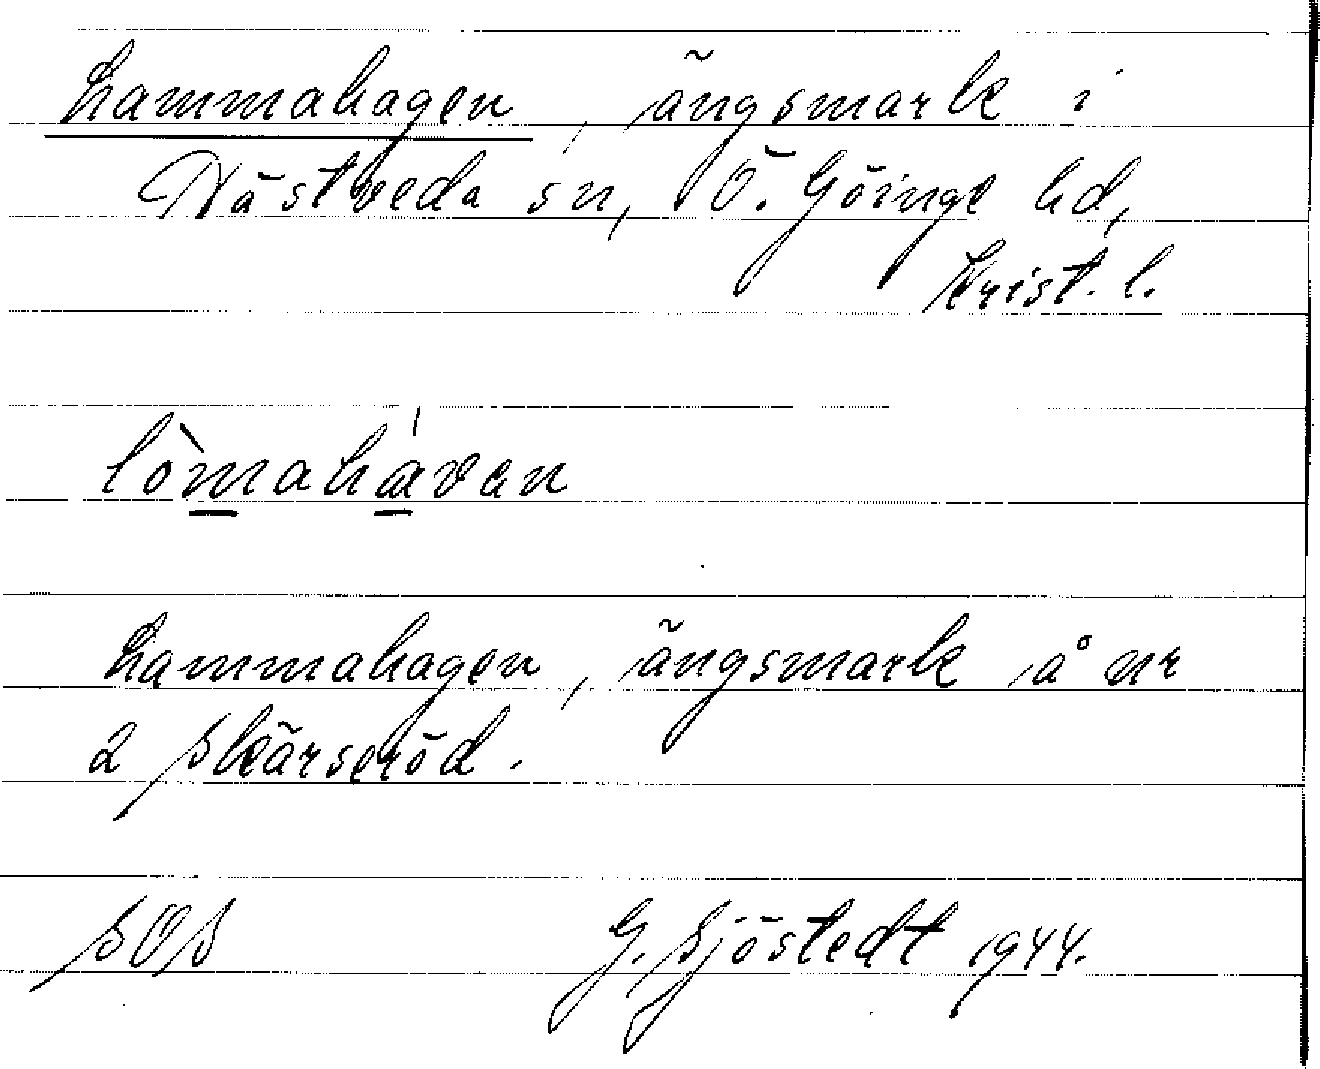 Lammahagen, ängsmark i
Hästveda sn, Ö. Göinge hd,
Krist. l.
lòmahávan
Lammahagen, ängsmark å nr
2 Skärseröd.
SOS G. Sjöstedt 1944.